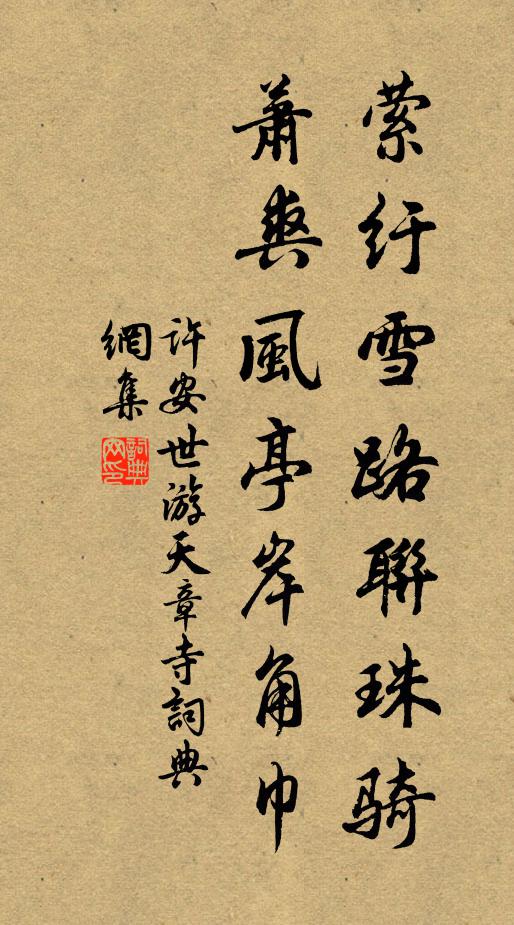 萦纡雪路聯珠騎
蕭爽風亭岸角巾
許安世游天章寺詞典
網集
詞典網印